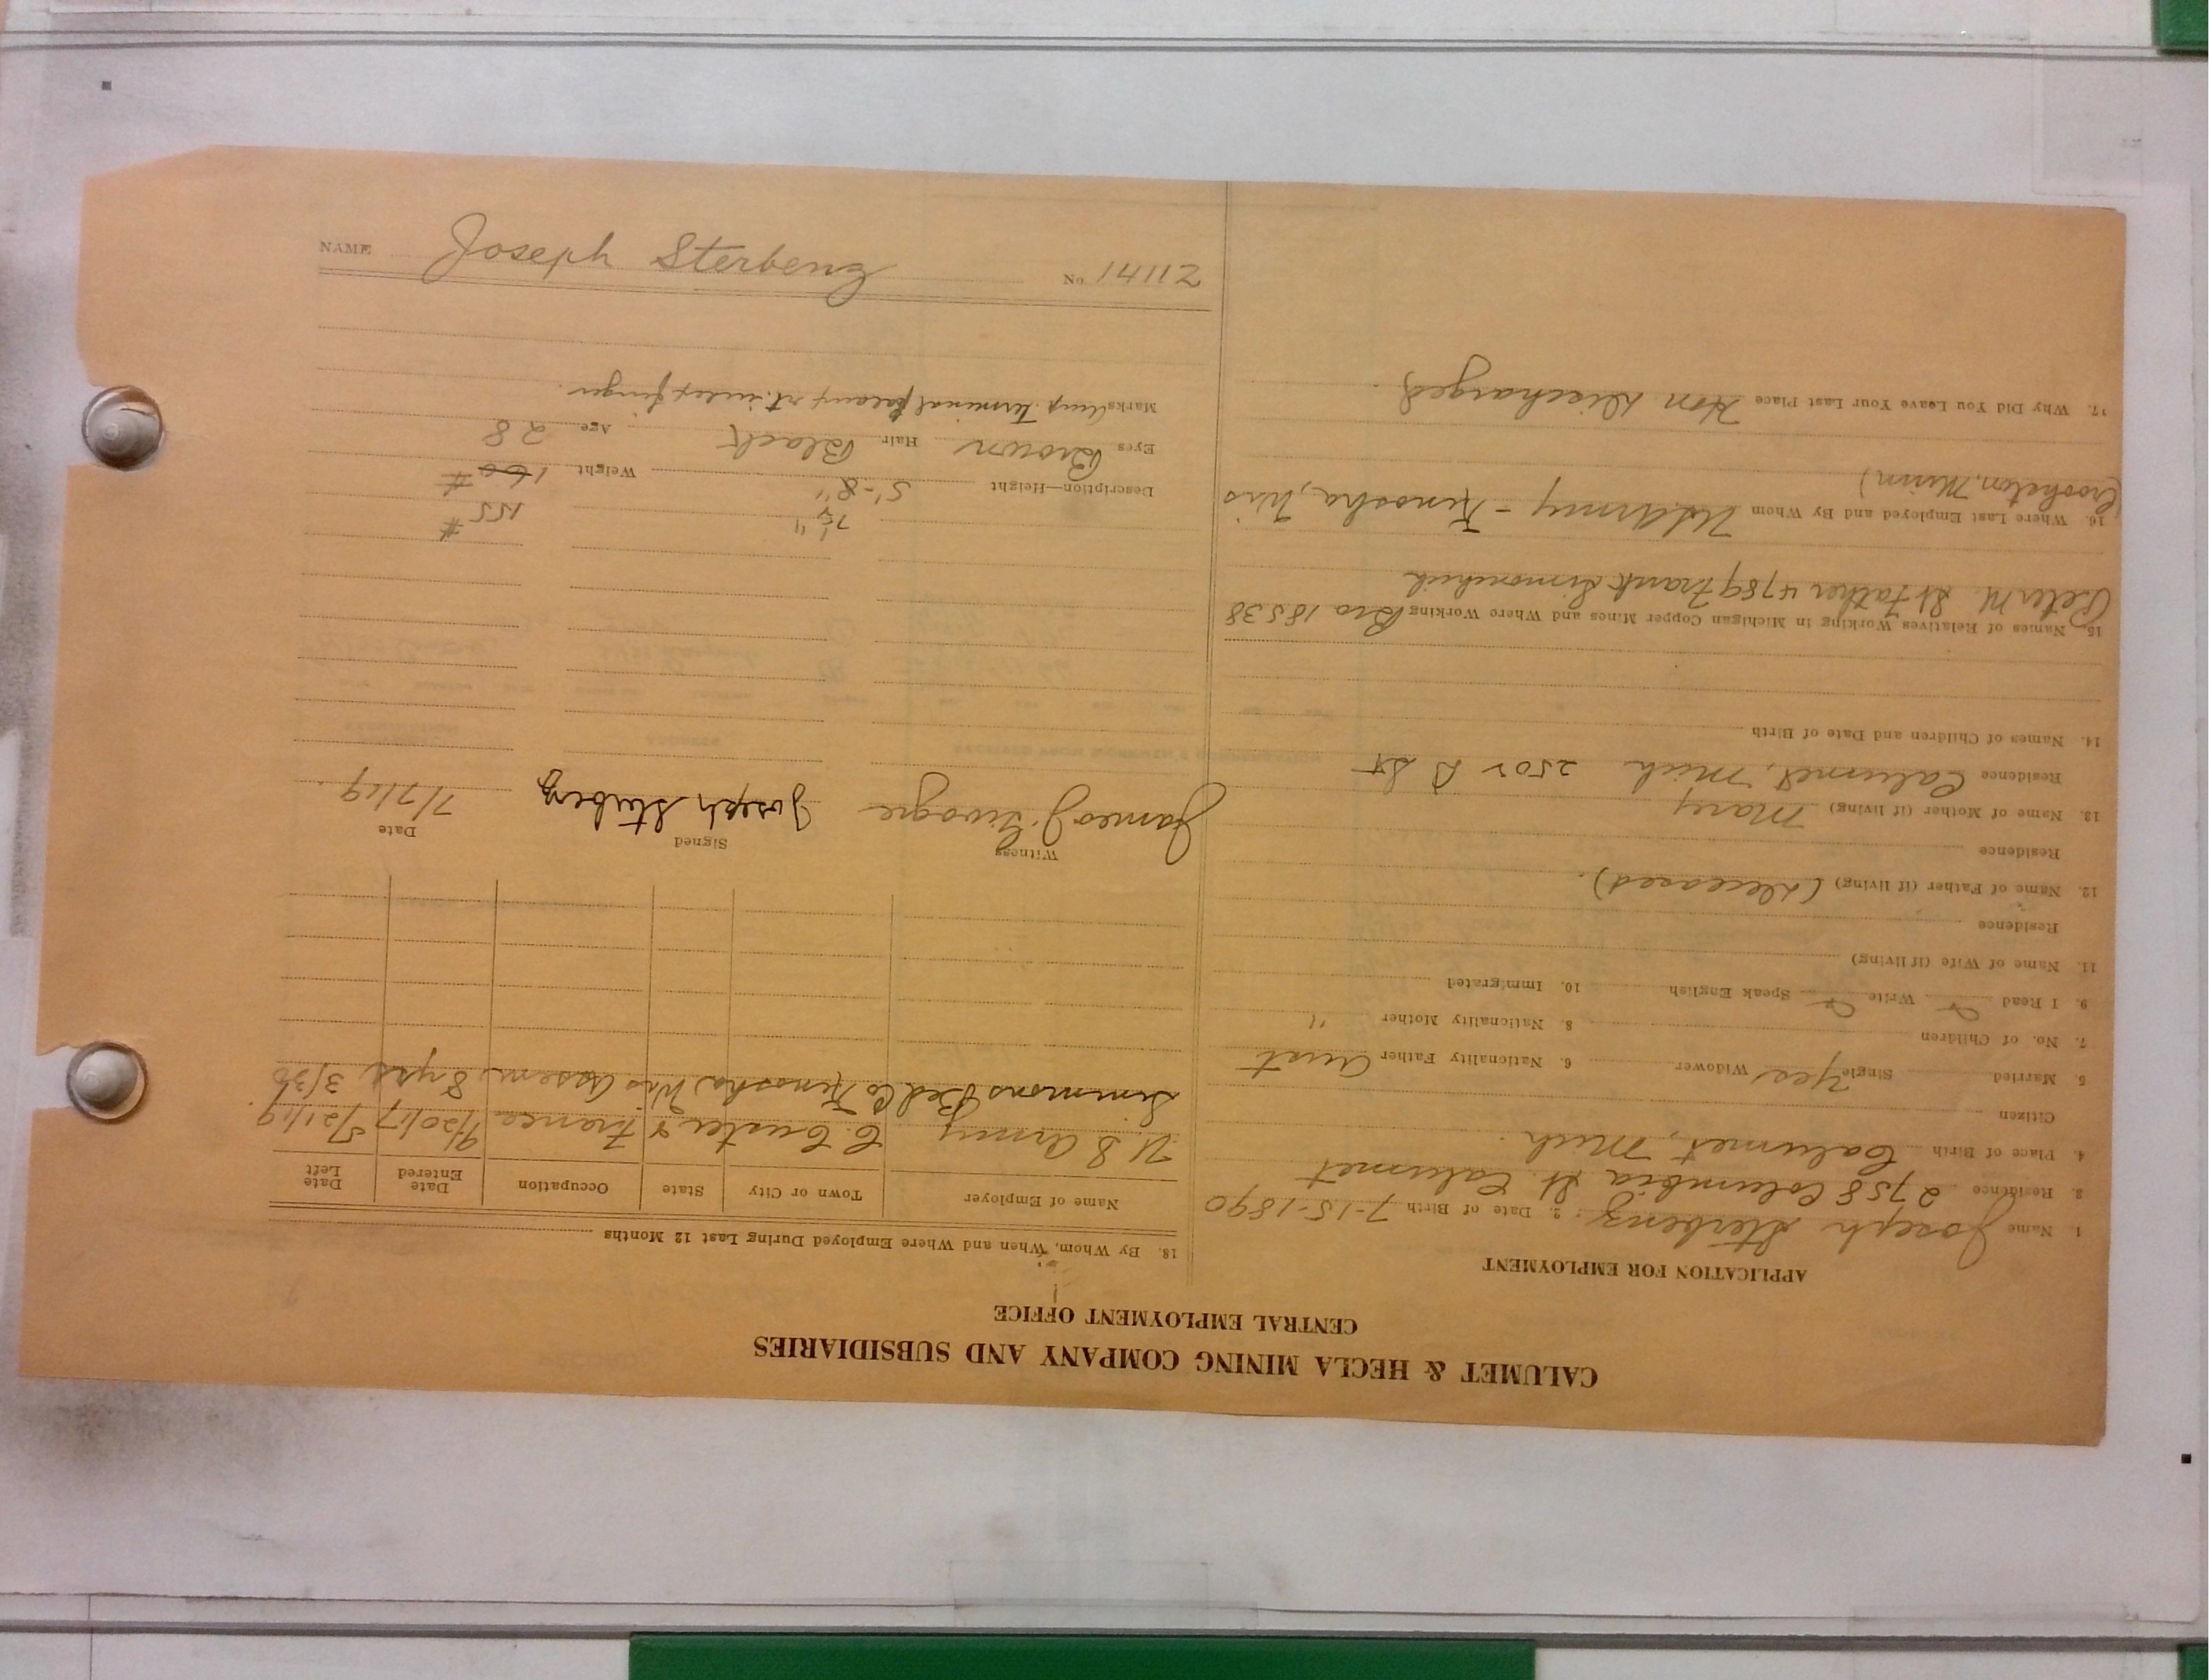 CALUMET & HECLA MINING COMPANY AND SUBSIDIARIES
CENTRAL EMPLOYMENT OFFICE
APPLICATION FOR EMPLOYMENT
1. Name Joseph Sterbenz 2. Date of Birth 7-15-1890
3. Residence 2758 Columbia St. Calumet
4. Place of Birth Calumet, Mich.
Citizen
5. Married Single Yes Widower 6. Nationality Father Aust
7. No. of Children 8. Nationality Mother "
9. I Read Write Speak English 10. Immigrated
11. Name of Wife (if living)
Residence
12. Name of Father (if living) (deceased).
Residence
13. Name of Mother (if living) Mary
Residence Calumet, Mich. 2502 B St
14. Names of Children and Date of Birth
15. Names of Relatives Working in Michigan Copper Mines and Where Working Bro 18538
Peter M. St Father 4789 Frank Simonich
16. Where Last Employed and By Whom US Army - Kenosha, Wis
(Crookston, Minn)
17. Why Did You Leave Your Last Place Hon Discharged.
18. By Whom, When and Where Employed During Last 12 Months
Name of Employer Town or City State Occupation Date Entered Date Left
U S Army C. Custer & France 9/20/17 5/21/19
Simmons Bed Co Kenosha Wis Assem. 8 yrs 3/36
Witness Signed Date
James J. Joseph Sterbenz 7/7/19.
7½" 155 #
Description—Height 5'-8" Weight 160 #
Eyes Brown Hair Black Age 28
Marks Amp. terminal phalanx rt. index finger.
NAME Joseph Sterbenz No 14112